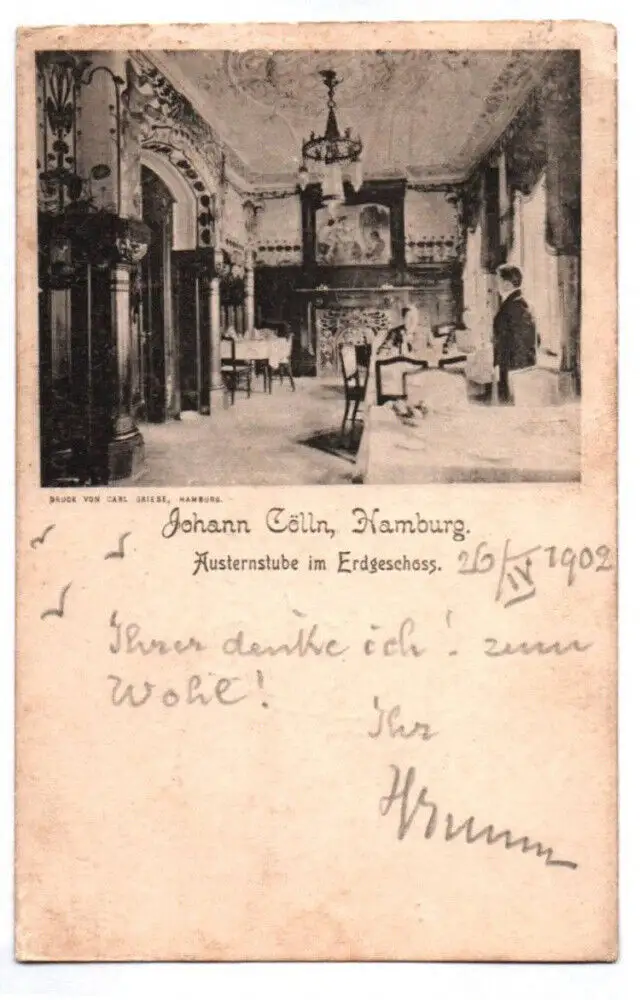 DRUCK VON CARL GRIESE, HAMBURG.
Johann Cölln, Hamburg.
Austernstube im Erdgeschoss. 26/IV 1902
Ihrer denke ich! zum
Wohl!
Ihr